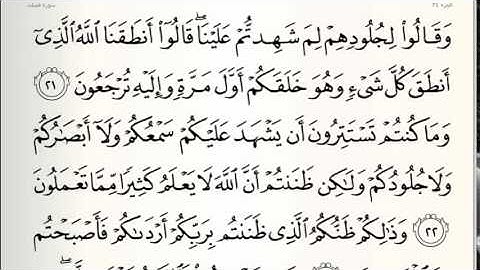 الجزء ٢٤ سورة فصلت
وَقَالُوا۟ لِجُلُودِهِمْ لِمَ شَهِدتُّمْ عَلَيْنَا ۖ قَالُوٓا۟ أَنطَقَنَا ٱللَّهُ ٱلَّذِىٓ
أَنطَقَ كُلَّ شَىْءٍ وَهُوَ خَلَقَكُمْ أَوَّلَ مَرَّةٍ وَإِلَيْهِ تُرْجَعُونَ ٢١
وَمَا كُنتُمْ تَسْتَتِرُونَ أَن يَشْهَدَ عَلَيْكُمْ سَمْعُكُمْ وَلَآ أَبْصَٰرُكُمْ
وَلَا جُلُودُكُمْ وَلَٰكِن ظَنَنتُمْ أَنَّ ٱللَّهَ لَا يَعْلَمُ كَثِيرًا مِّمَّا تَعْمَلُونَ
٢٢ وَذَٰلِكُمْ ظَنُّكُمُ ٱلَّذِى ظَنَنتُم بِرَبِّكُمْ أَرْدَىٰكُمْ فَأَصْبَحْتُم